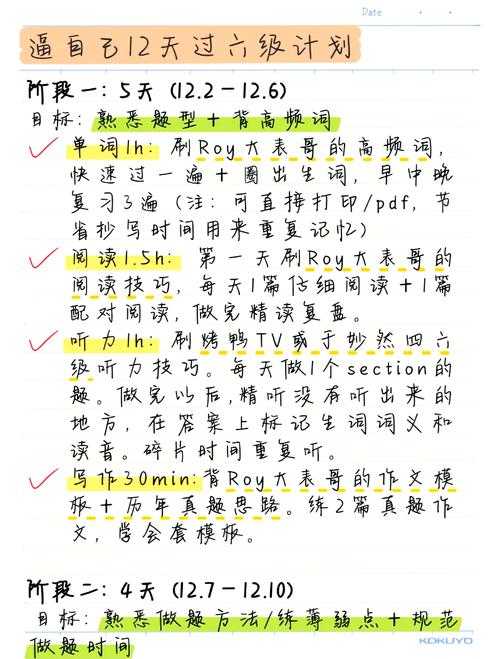 Date
逼自己12天过六级计划
阶段一：5天（12.2-12.6）
目标：熟悉题型+背高频词
单词1h：刷Roy大表哥的高频词，
快速过一遍+圈出生词，早中晚
复习3遍（注：可直接打印/pdf，节
省抄写时间用来重复记忆）
阅读1.5h：第一天刷Roy大表哥的
阅读技巧，每天1篇仔细阅读+1篇
配对阅读，做完精读复盘。
听力1h：刷烤鸭TV或于妙然四六
级听力技巧。每天做1个section的
题。做完以后，精听没有听出来的
地方，在答案上标记生词词义和
读音。碎片时间重复听。
写作30min:背Roy大表哥的作文模
板+历年真题思路。练2篇真题作
文，学会套模板。
阶段二：4天（12.7-12.10）
目标：熟悉做题方法/练薄弱点+规范
做题时间
KOKUYO